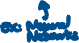 Ex: Neural
Networks